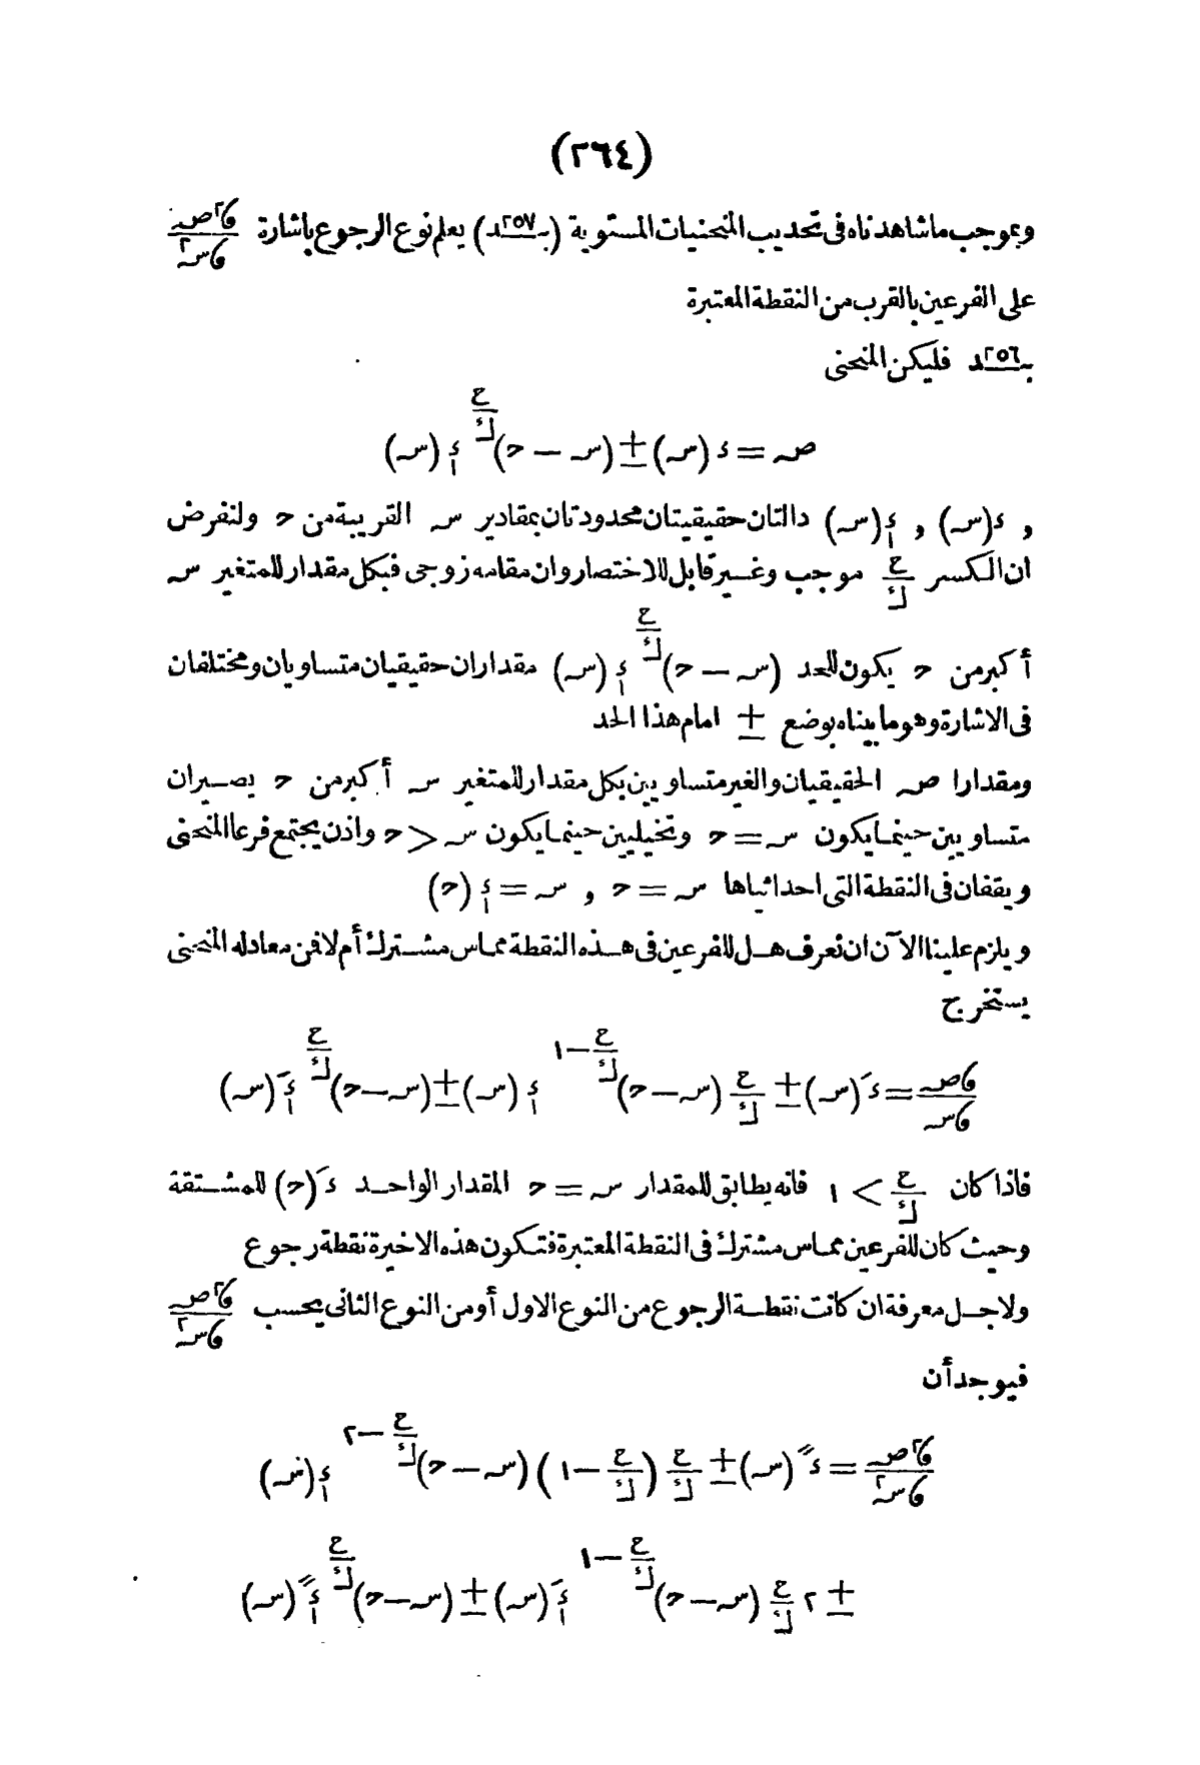 (٢٦٤)
وبموجب ما شاهدناه فى تحديب المنحنيات المستوية (بـ٢٥٧ـند) يعلم نوع الرجوع باشارة ڡا٢صـ/ڡاسـ٢
على الفرعين بالقرب من النقطة المعتبرة
بـ٢٥٦ـند فليكن المنحنى
صـ = ء (سـ) ± (سـ − حـ)^(ع/ك) ء١ (سـ)
و ء(سـ) و ء١(سـ) دالتان حقيقيتان محدودتان بمقادير سـ القريبة من حـ ولنفرض
ان الكسر ع/ك موجب وغير قابل للاختصار وان مقامه زوجى فبكل مقدار للمتغير سـ
أكبر من حـ يكون للحد (سـ − حـ)^(ع/ك) ء١ (سـ) مقداران حقيقيان متساويان ومختلفان
فى الاشارة وهو ما بيناه بوضع ± امام هذا الحد
ومقدارا صـ الحقيقيان والغير متساويين بكل مقدار للمتغير سـ أكبر من حـ يصيران
متساويين حينما يكون سـ = حـ وتخيليين حينما يكون سـ > حـ واذن يجتمع فرعا المنحنى
ويقفان فى النقطة التى احداثياها سـ = حـ و سـ = ء١ (حـ)
ويلزم علينا الآن ان نعرف هل للفرعين فى هذه النقطة مماس مشترك أم لا فمن معادله المنحنى
يستخرج
ڡاصـ/ڡاسـ = ءَ (سـ) ± ع/ك (سـ − حـ)^(ع/ك − ١) ء١ (سـ) ± (سـ − حـ)^(ع/ك) ءَ١ (سـ)
فاذا كان ع/ك < ١ فانه يطابق للمقدار سـ = حـ المقدار الواحد ءَ (حـ) للمشتقة
وحيث كان للفرعين مماس مشترك فى النقطة المعتبرة فتكون هذه الاخيرة نقطة رجوع
ولاجل معرفة ان كانت نقطة الرجوع من النوع الاول أو من النوع الثانى يحسب ڡا٢صـ/ڡاسـ٢
فيوجد أن
ڡا٢صـ/ڡاسـ٢ = ءً (سـ) ± ع/ك (ع/ك − ١) (سـ − حـ)^(ع/ك − ٢) ء١ (سـ)
± ٢ ع/ك (سـ − حـ)^(ع/ك − ١) ءَ١ (سـ) ± (سـ − حـ)^(ع/ك) ءً١ (سـ)